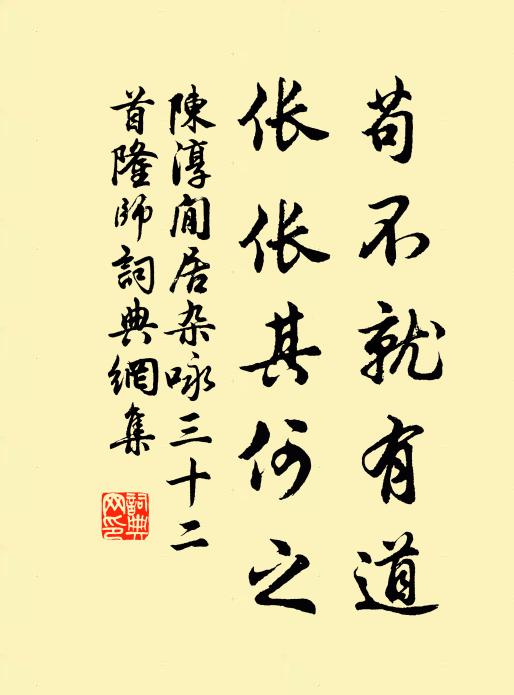 苟不就有道
伥伥其何之
陳淳閒居杂咏三十二
首隆師詞典網集
詞典网印